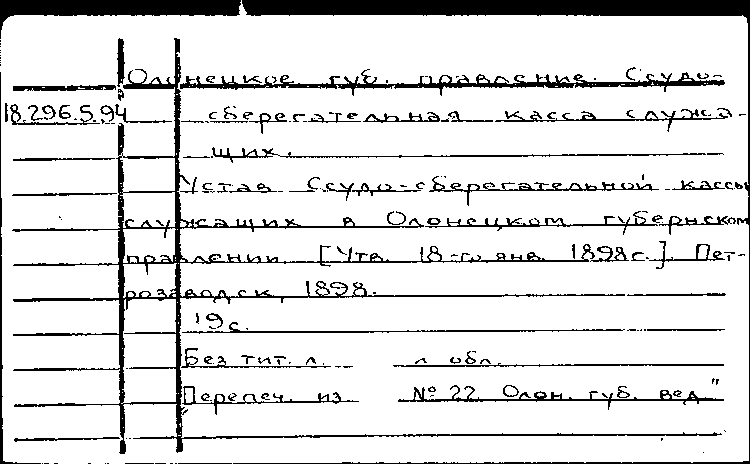 Олонецкое губ. правление. Ссудо-
18.296.5.94 сберегательная касса служа-
щих.
Устав Ссудо-сберегательной кассы
служащих в Олонецком губернском
правлении. [Утв. 18-го янв. 1898 г.]. Пет-
розаводск, 1898.
19 с.
Без тит. л. и обл.
Перепеч. из "№ 22 Олон. губ. вед"